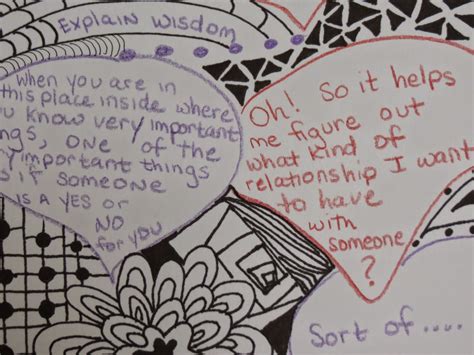 Explain Wisdom
When you are in
this place inside where
know very important
one of the
important things
if someone
is a Yes or
No
for you
Oh! So it helps
me figure out
what kind of
relationship I want
to have
with
someone
?
Sort of....